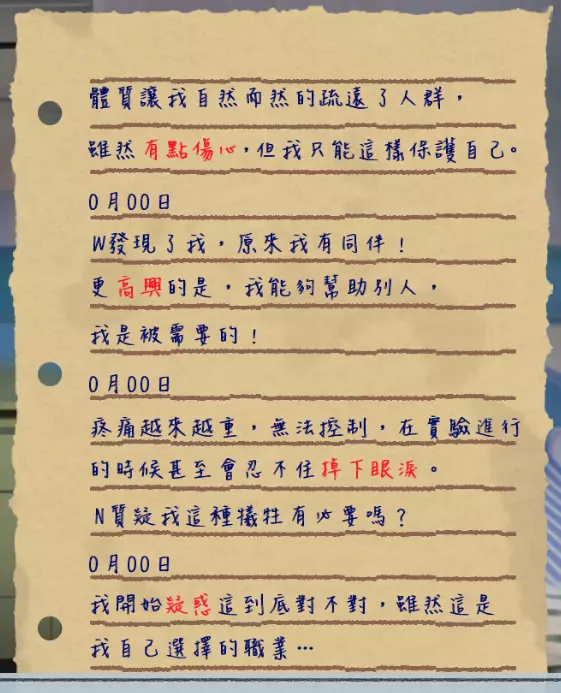 體質讓我自然而然的疏遠了人群，
雖然有點傷心，但我只能這樣保護自己。
0月00日
W發現了我，原來我有同伴！
更高興的是，我能夠幫助別人，
我是被需要的！
0月00日
疼痛越來越重，無法控制，在實驗進行
的時候甚至會忍不住掉下眼淚。
N質疑我這種犧牲有必要嗎？
0月00日
我開始疑惑這到底對不對，雖然這是
我自己選擇的職業…